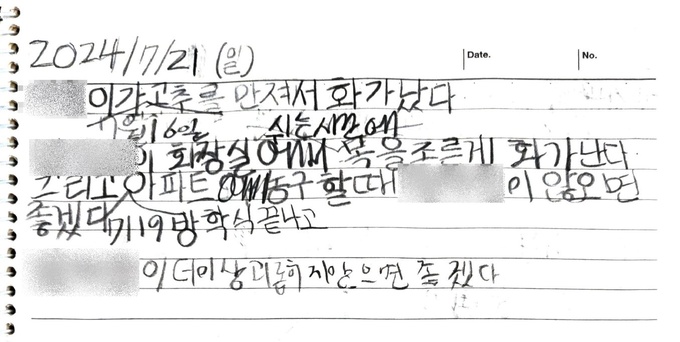 2024/7/21 (일)
Date.
No.
이가 고추를 만져서 화가 났다
16일 쉬는시간에
이 화장실에서 목을 조르게 화가 난다
그리고 아파트에서 농구 할 때 이 않오면
좋겠다 7/19 방학식 끝나고
이 더이상 괴롭히지 않으면 좋겠다